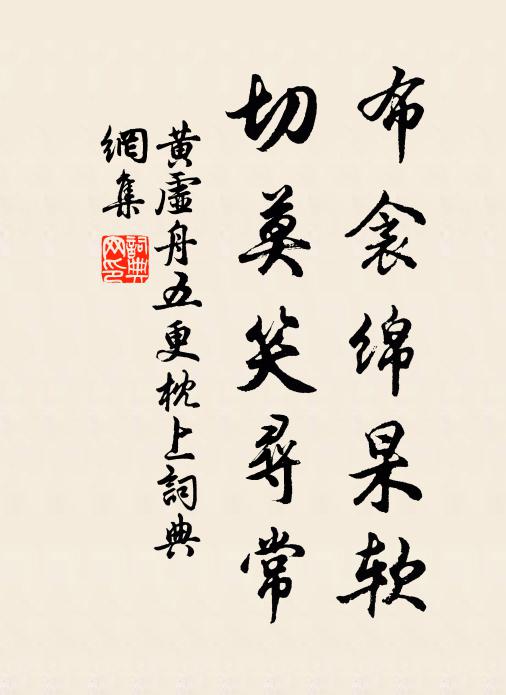 布衾绵杲软
切莫笑尋常
黄虚舟五更枕上詞典
網集
詞典
网印